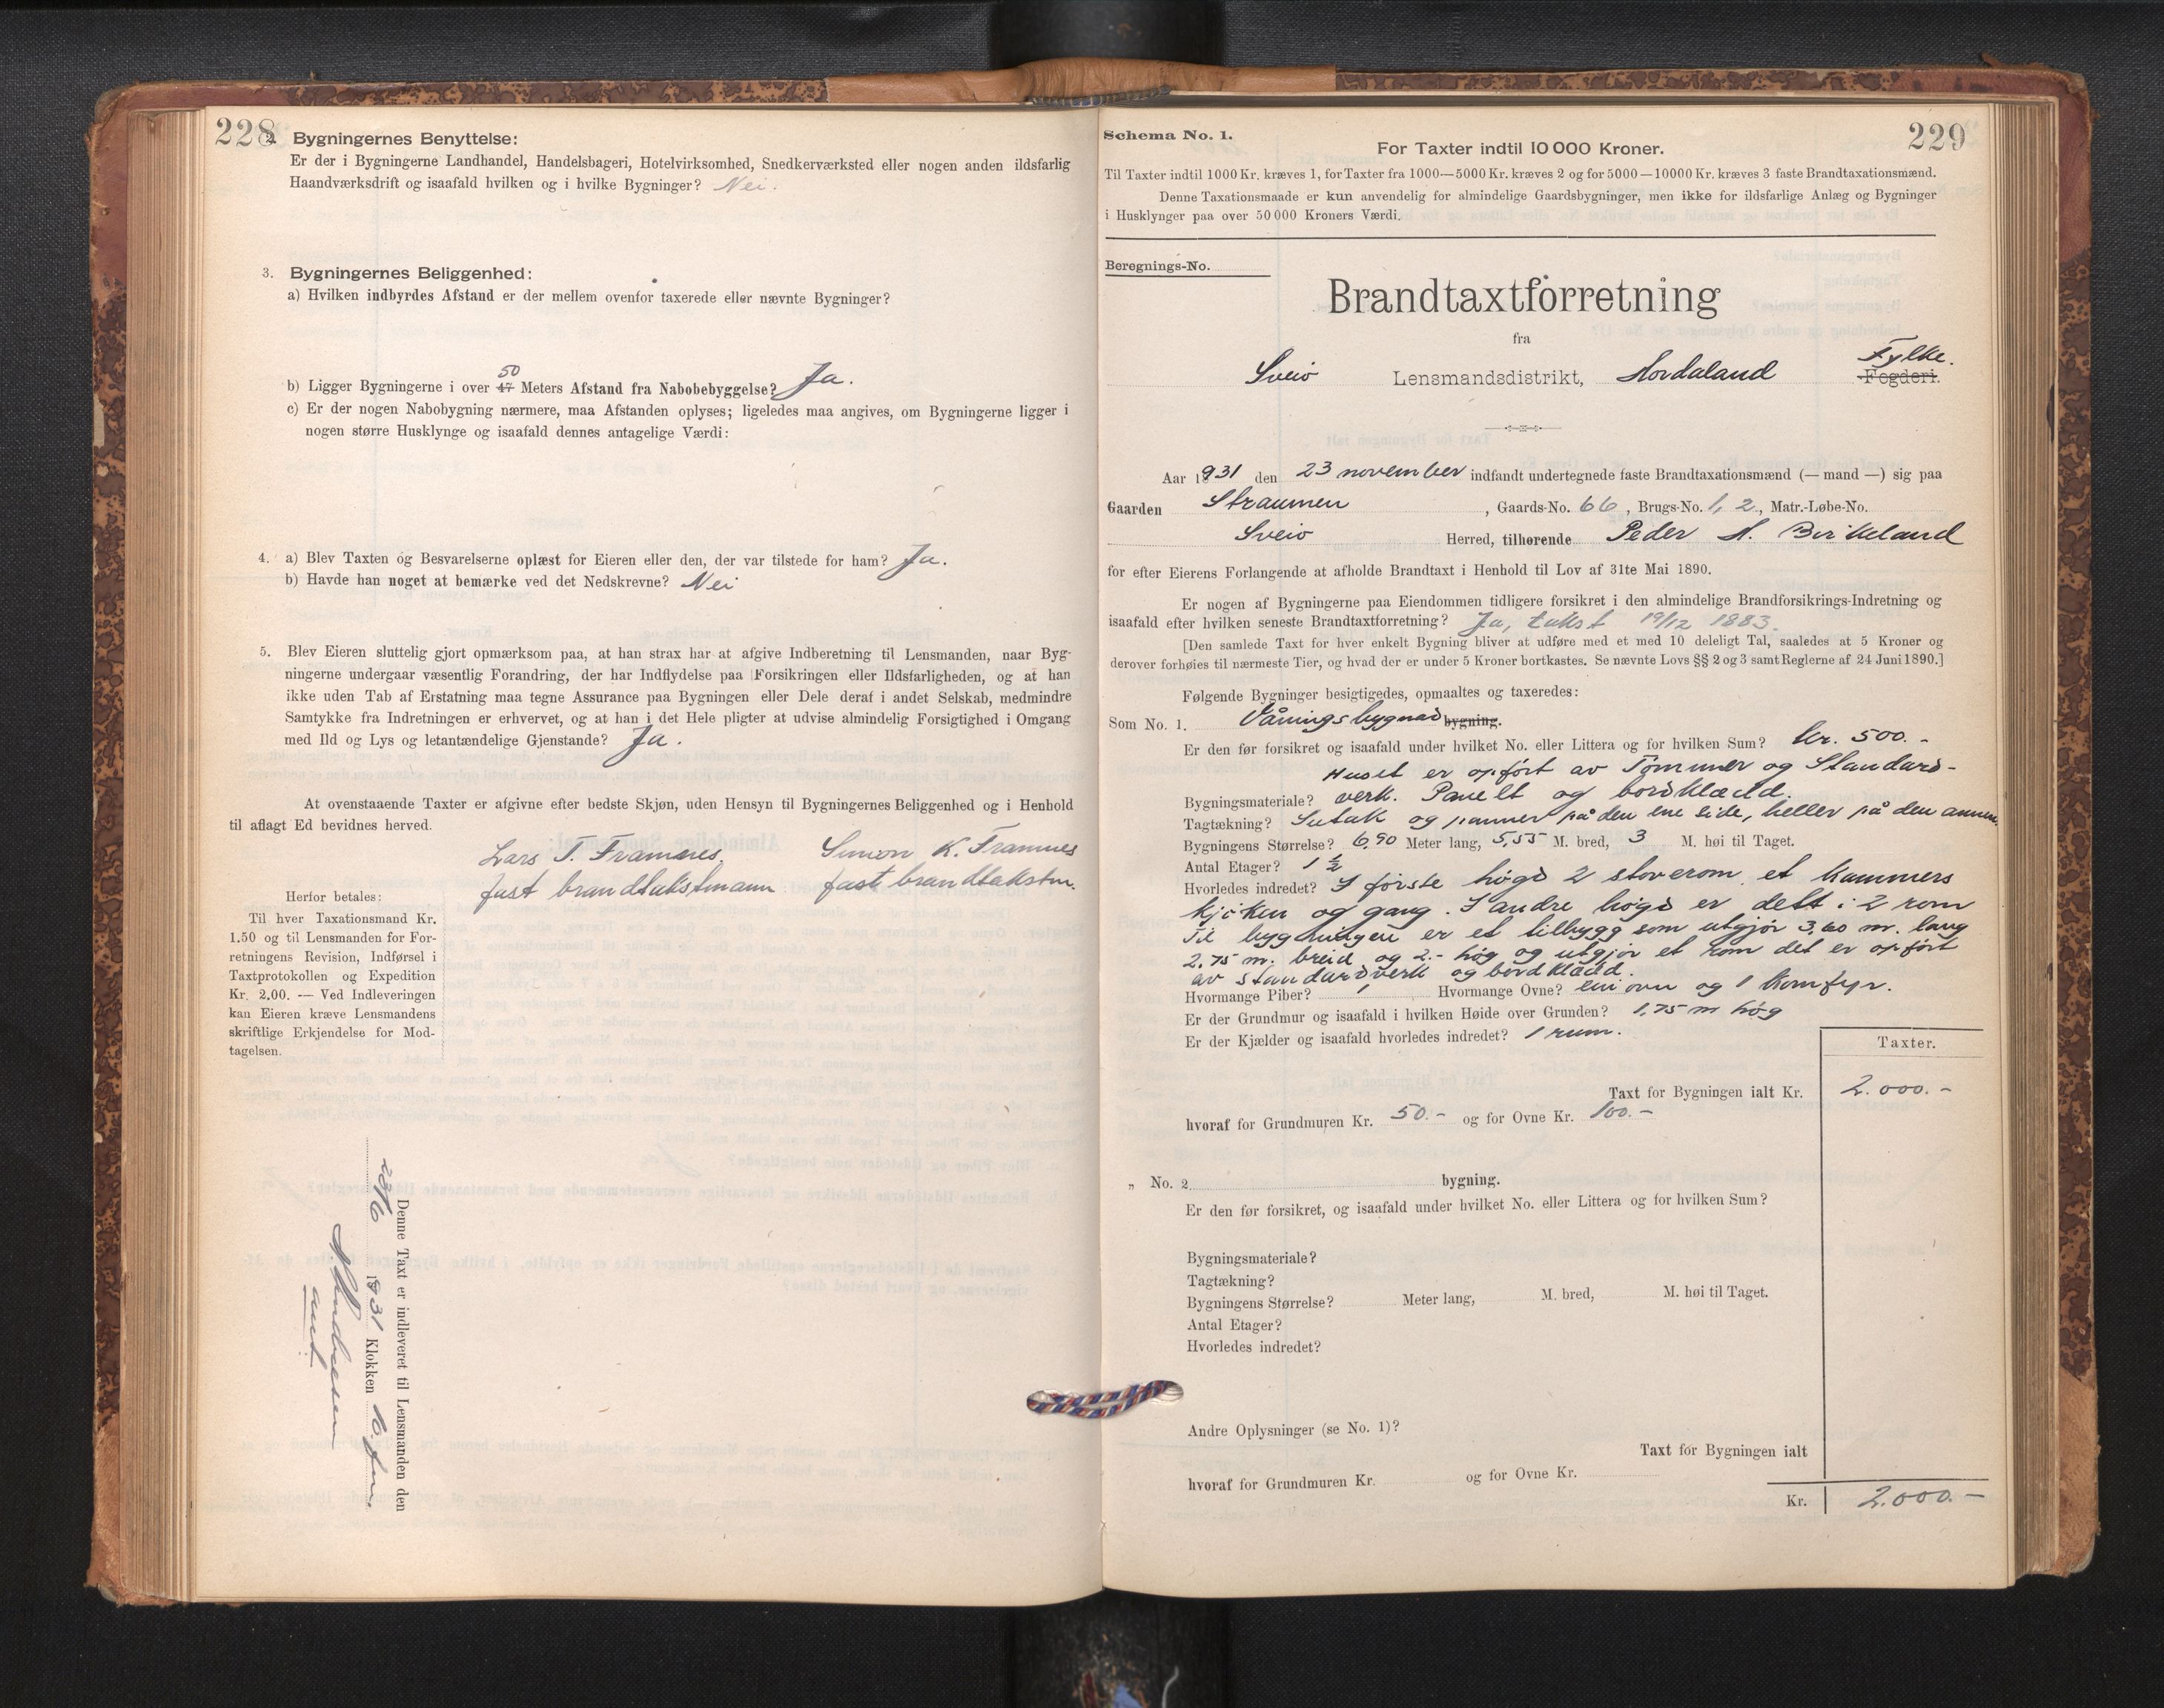 228
2. Bygningernes Benyttelse:
Er der i Bygningerne Landhandel, Handelsbageri, Hotelvirksomhed, Snedkerværksted eller nogen anden ildsfarlig
Haandværksdrift og isaafald hvilken og i hvilke Bygninger? Nei.
3. Bygningernes Beliggenhed:
a) Hvilken indbyrdes Afstand er der mellem ovenfor taxerede eller nævnte Bygninger?
50
b) Ligger Bygningerne i over 47 Meters Afstand fra Nabobebyggelse? Ja.
c) Er der nogen Nabobygning nærmere, maa Afstanden oplyses; ligeledes maa angives, om Bygningerne ligger i
nogen større Husklynge og isaafald dennes antagelige Værdi:
4. a) Blev Taxten og Besvarelserne oplæst for Eieren eller den, der var tilstede for ham? Ja.
b) Havde han noget at bemærke ved det Nedskrevne? Nei
5. Blev Eieren sluttelig gjort opmærksom paa, at han strax har at afgive Indberetning til Lensmanden, naar Byg-
ningerne undergaar væsentlig Forandring, der har Indflydelse paa Forsikringen eller Ildsfarligheden, og at han
ikke uden Tab af Erstatning maa tegne Assurance paa Bygningen eller Dele deraf i andet Selskab, medmindre
Samtykke fra Indretningen er erhvervet, og at han i det Hele pligter at udvise almindelig Forsigtighed i Omgang
med Ild og Lys og letantændelige Gjenstande? Ja.
At ovenstaaende Taxter er afgivne efter bedste Skjøn, uden Hensyn til Bygningernes Beliggenhed og i Henhold
til aflagt Ed bevidnes herved.
Lars T. Framnes. Simon K. Framnes
fast brandtakstmann fast brandtakstm.
Herfor betales:
Til hver Taxationsmand Kr.
1.50 og til Lensmanden for For-
retningens Revision, Indførsel i
Taxtprotokollen og Expedition
Kr. 2.00. — Ved Indleveringen
kan Eieren kræve Lensmandens
skriftlige Erkjendelse for Mod-
tagelsen.
Denne Taxt er indleveret til Lensmanden den
1931 Klokken 10 fm
229
Schema No. 1.
For Taxter indtil 10 000 Kroner.
Til Taxter indtil 1000 Kr. kræves 1, for Taxter fra 1000—5000 Kr. kræves 2 og for 5000—10000 Kr. kræves 3 faste Brandtaxationsmænd.
Denne Taxationsmaade er kun anvendelig for almindelige Gaardsbygninger, men ikke for ildsfarlige Anlæg og Bygninger
i Husklynger paa over 50 000 Kroners Værdi.
Beregnings-No.
Brandtaxtforretning
fra
Fylke.
Sveio Lensmandsdistrikt, Hordaland Fogderi.
Aar 1931 den 23 november indfandt undertegnede faste Brandtaxationsmænd (— mand —) sig paa
Gaarden Straumen, Gaards-No. 66, Brugs-No. 1, 2., Matr.-Løbe-No.
Sveio Herred, tilhørende Peder A. Birkeland
for efter Eierens Forlangende at afholde Brandtaxt i Henhold til Lov af 31te Mai 1890.
Er nogen af Bygningerne paa Eiendommen tidligere forsikret i den almindelige Brandforsikrings-Indretning og
isaafald efter hvilken seneste Brandtaxtforretning? Ja, takst 19/12 1883.
[Den samlede Taxt for hver enkelt Bygning bliver at udføre med et med 10 deleligt Tal, saaledes at 5 Kroner og
derover forhøies til nærmeste Tier, og hvad der er under 5 Kroner bortkastes. Se nævnte Lovs §§ 2 og 3 samt Reglerne af 24 Juni 1890.]
Følgende Bygninger besigtigedes, opmaaltes og taxeredes:
Som No. 1. Våningsbygnad bygning.
Er den før forsikret og isaafald under hvilket No. eller Littera og for hvilken Sum? kr. 500.-
Huset er opført av Tømmer og Standard-
Bygningsmateriale? verk. Panelt og bordklædd.
Tagtækning? Sutak og panner på den ene side, heller på den annen.
Bygningens Størrelse? 6,90 Meter lang, 5,55 M. bred, 3 M. høi til Taget.
Antal Etager? 1 1/2
Hvorledes indredet? I første høgd 2 stoverom, et kammers
kjøken og gang. I andre høgd er delt i 2 rom
Til bygningen er et tilbygg som utgjør 3,60 m. lang
2,75 m. breid og 2.- høg og utgjør et rom det er opført
av standardverk og bordklædd.
Hvormange Piber? 1 Hvormange Ovne? ein ovn og 1 komfyr.
Er der Grundmur og isaafald i hvilken Høide over Grunden? 1,75 m høg
Er der Kjælder og isaafald hvorledes indredet? 1 rum.
Taxter.
Taxt for Bygningen ialt Kr. 2.000.-
hvoraf for Grundmuren Kr. 50.- og for Ovne Kr. 100.-
„ No. 2 bygning.
Er den før forsikret, og isaafald under hvilket No. eller Littera og for hvilken Sum?
Bygningsmateriale?
Tagtækning?
Bygningens Størrelse? Meter lang, M. bred, M. høi til Taget.
Antal Etager?
Hvorledes indredet?
Andre Oplysninger (se No. 1)?
Taxt for Bygningen ialt
hvoraf for Grundmuren Kr. og for Ovne Kr.
Kr. 2.000.-